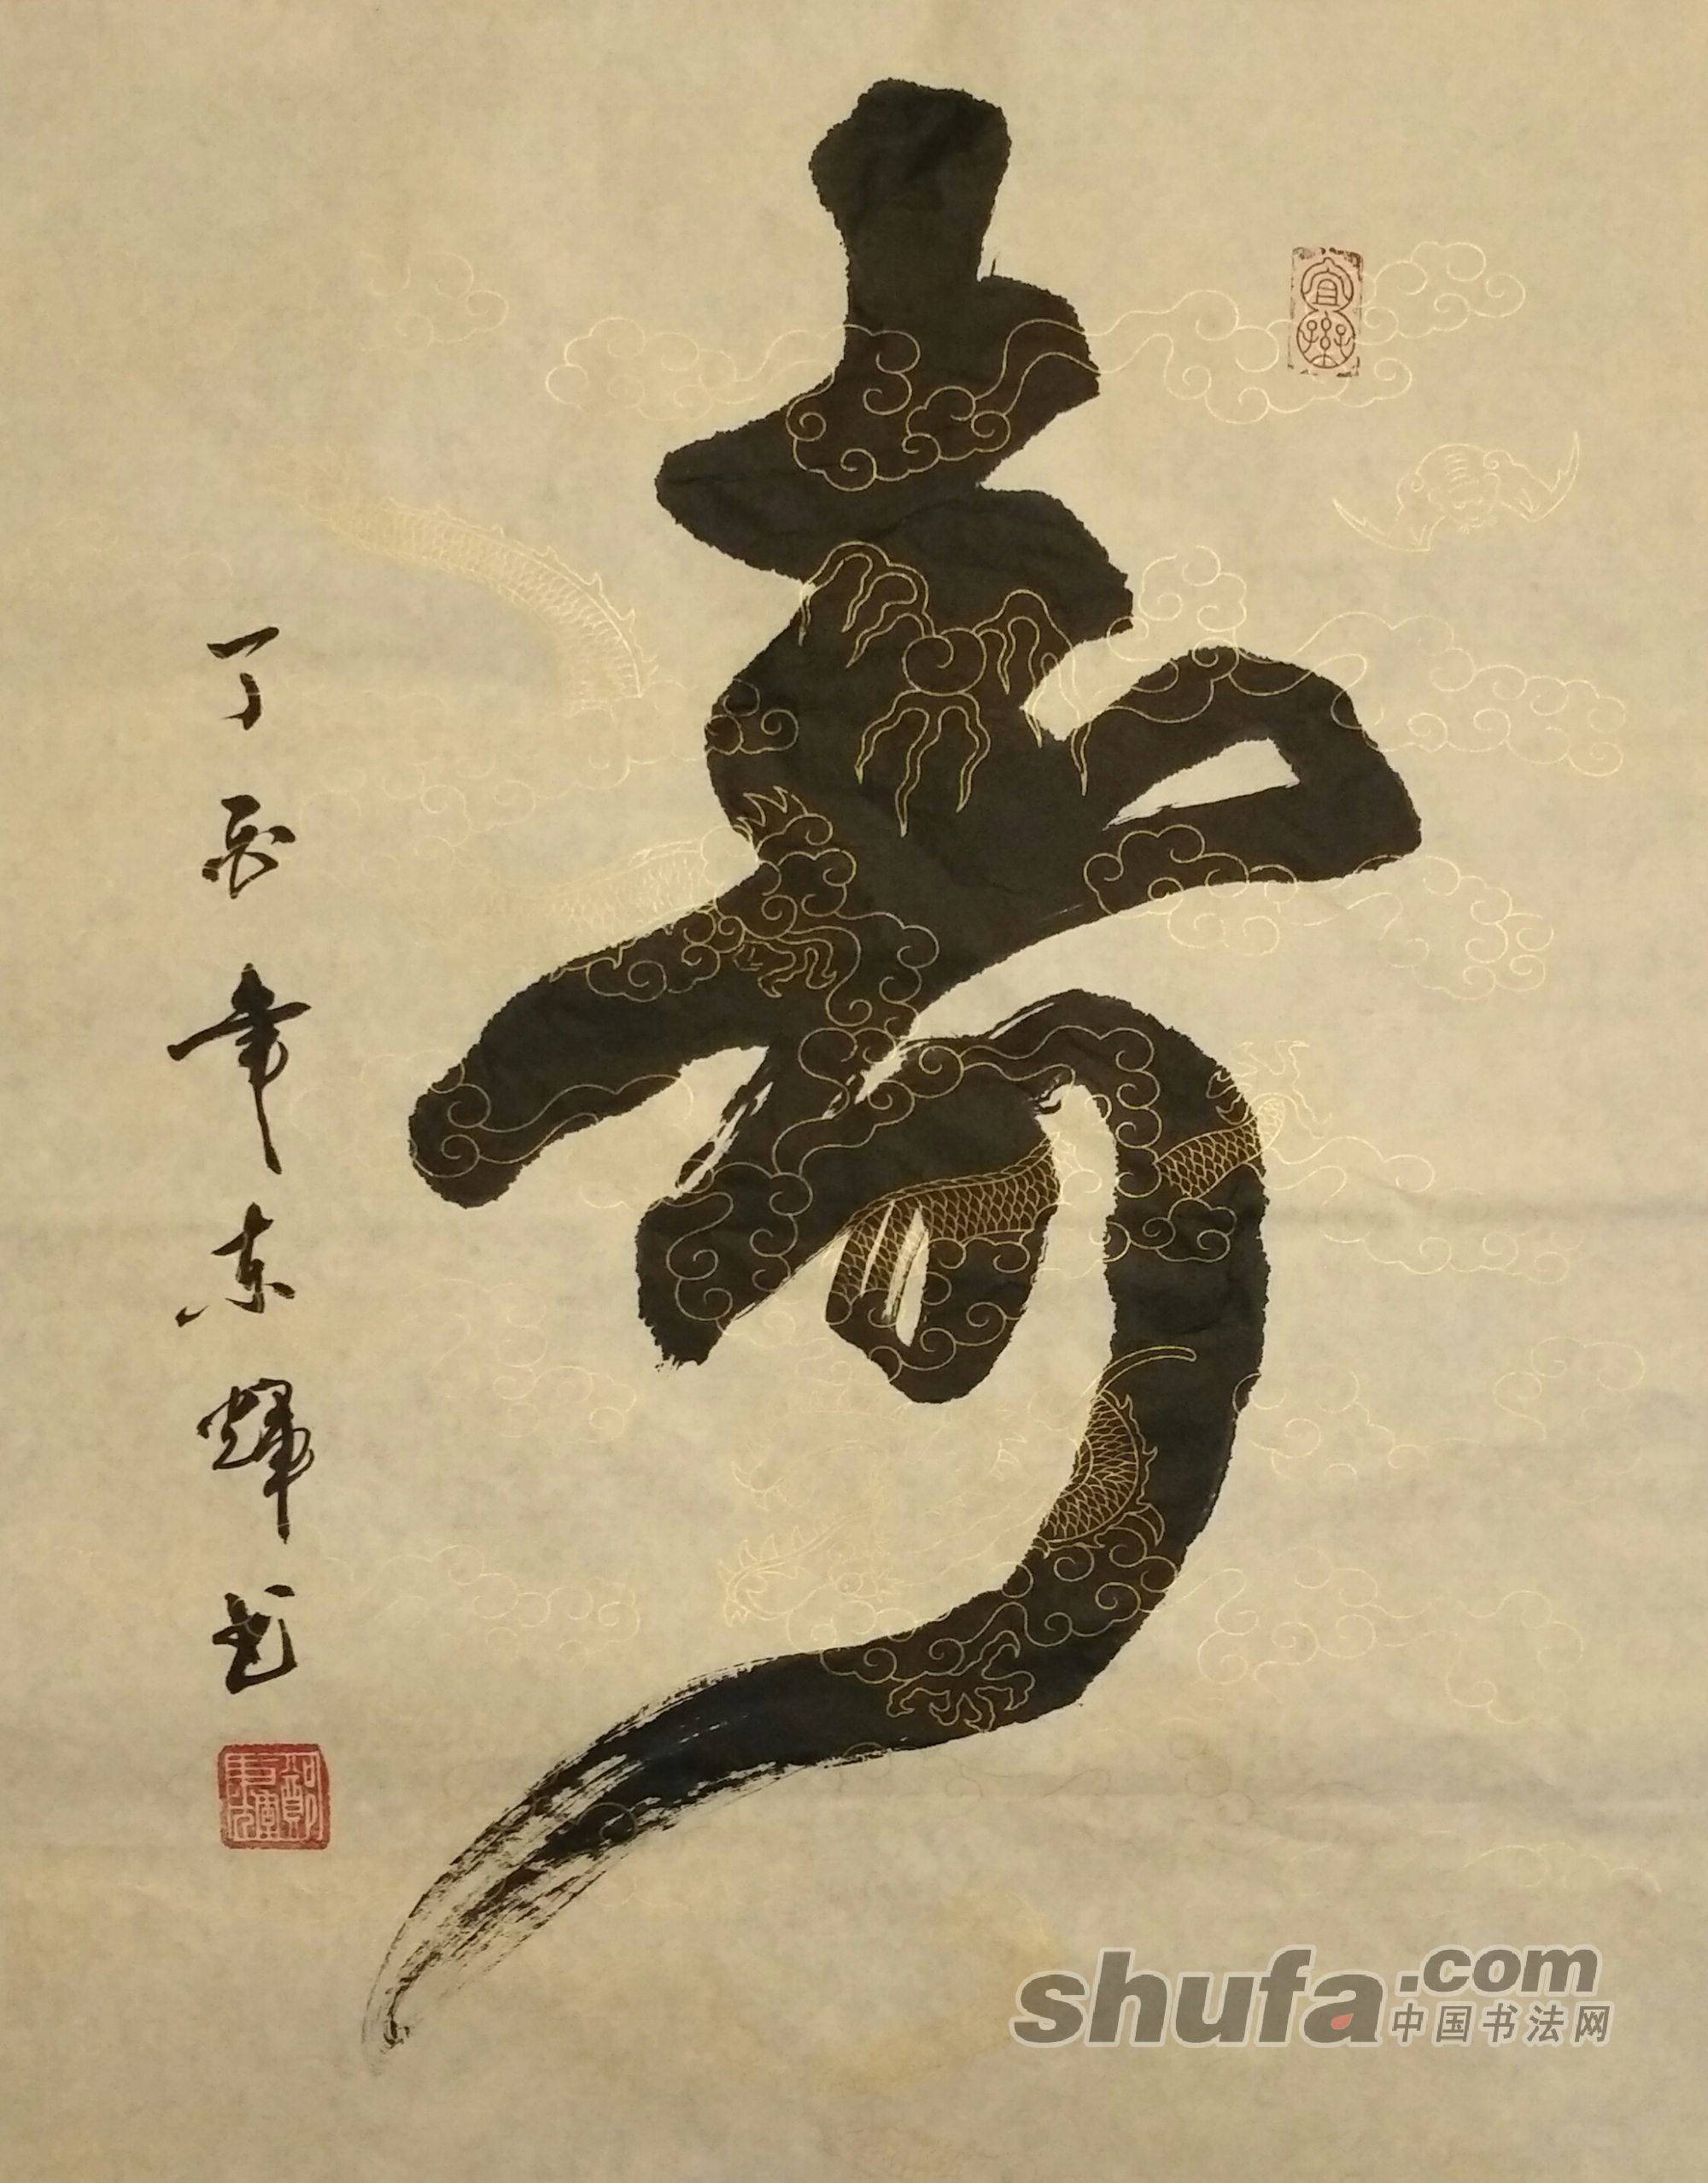 宜樂
寿
丁酉年东輝书
shufa.com
中国书法网